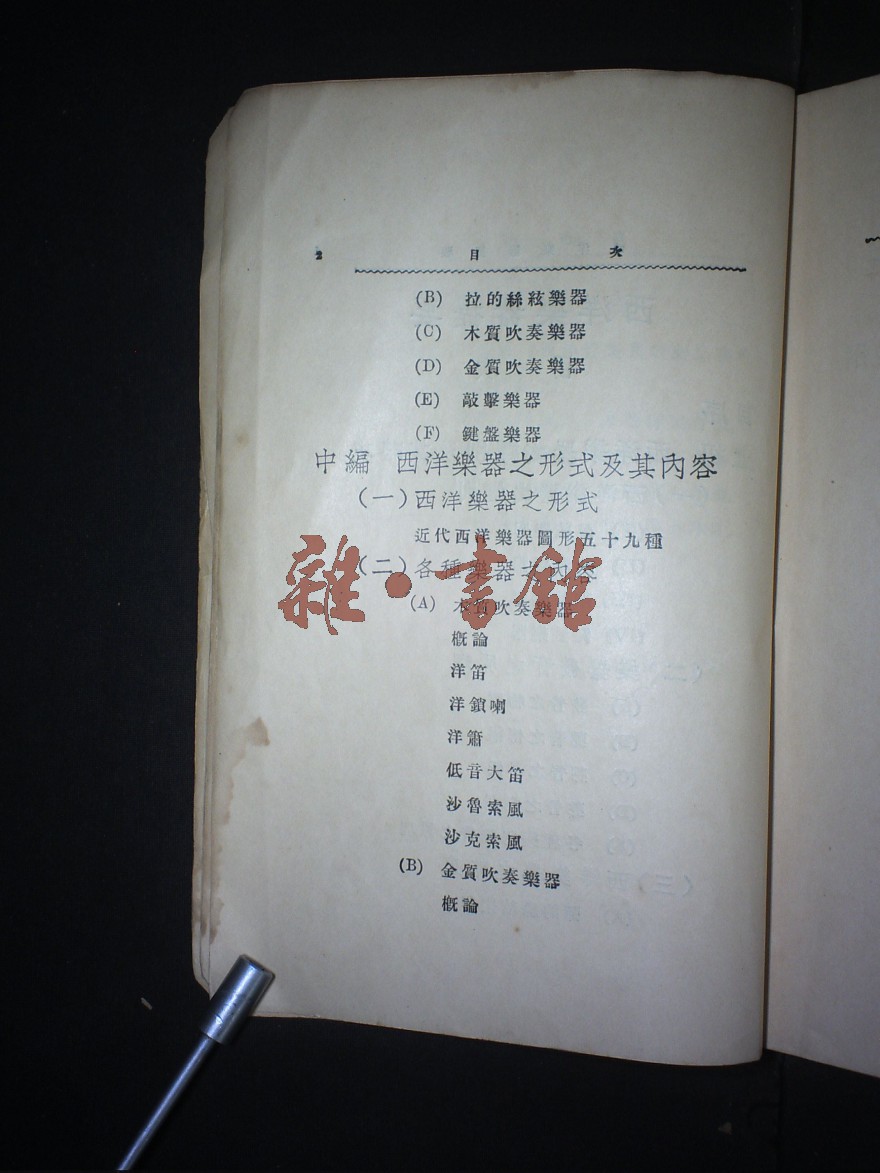 2 目 次
(B) 拉的絲絃樂器
(C) 木質吹奏樂器
(D) 金質吹奏樂器
(E) 敲擊樂器
(F) 鍵盤樂器
中編 西洋樂器之形式及其內容
(一)西洋樂器之形式
近代西洋樂器圖形五十九種
(二)各種樂器之內容
雜·書館
(A) 木質吹奏樂器
概論
洋笛
洋鎖喇
洋簫
低音大笛
沙魯索風
沙克索風
(B) 金質吹奏樂器
概論